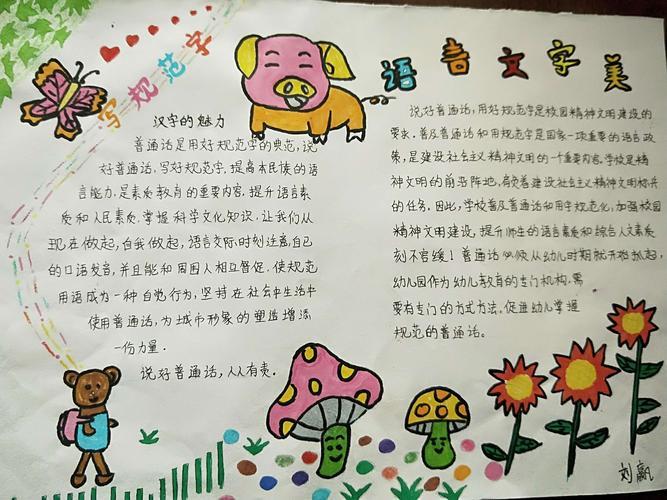 写规范字
语言文字美
汉字的魅力
普通话是用好规范字的典范，说
好普通话，写好规范字，提高本民族的语
言能力，是素质教育的重要内容，提升语言素
质和人民素质，掌握科学文化知识，让我们从
现在做起，自我做起，语言交际，时刻注意自己
的口语发音，并且能和周围人相互督促，使规范
用语成为一种自觉行为，坚持在社会中生活中
使用普通话，为城市形象的塑造增添
一份力量.
说好普通话，人人有责.
说好普通话，用好规范字是校园精神文明建设的
要求，普及普通话和用规范字是国家一项重要的语言政
策，是建设社会主义精神文明的一个重要内容，学校是精
神文明的前亚阵地，肩负着建设社会主义精神文明标兵
的任务，因此，学校普及普通话和用字规范化，加强校园
精神文明建设，提升师生的语言素质和综合人文素质
刻不容缓！普通话必须从幼儿时期就开始抓起，
幼儿园作为幼儿教育的专门机构，需
要有专门的方式方法，促进幼儿掌握
规范的普通话。
刘赢